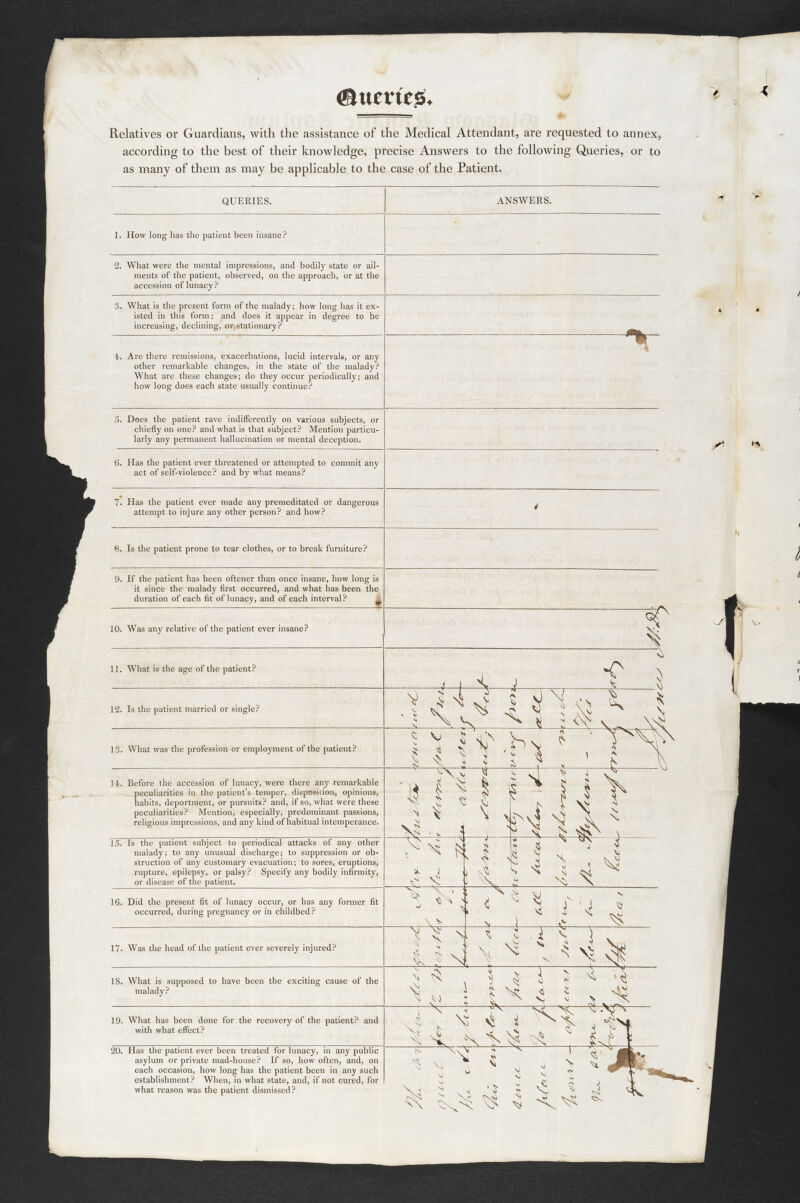 Queries.
Relatives or Guardians, with the assistance of the Medical Attendant, are requested to annex,
according to the best of their knowledge, precise Answers to the following Queries, or to
as many of them as may be applicable to the case of the Patient.
QUERIES.
ANSWERS.
1. How long has the patient been insane?
2. What were the mental impressions, and bodily state or ail-
ments of the patient, observed, on the approach, or at the
accession of lunacy?
3. What is the present form of the malady; how long has it ex-
isted in this form; and does it appear in degree to be
increasing, declining, or stationary?
4. Are there remissions, exacerbations, lucid intervals, or any
other remarkable changes, in the state of the malady?
What are these changes; do they occur periodically; and
how long does each state usually continue?
5. Does the patient rave indifferently on various subjects, or
chiefly on one? and what is that subject? Mention particu-
larly any permanent hallucination or mental deception.
6. Has the patient ever threatened or attempted to commit any
act of self-violence? and by what means?
7. Has the patient ever made any premeditated or dangerous
attempt to injure any other person? and how?
8. Is the patient prone to tear clothes, or to break furniture?
9. If the patient has been oftener than once insane, how long is
it since the malady first occurred, and what has been the
duration of each fit of lunacy, and of each interval?
10. Was any relative of the patient ever insane?
11. What is the age of the patient?
12. Is the patient married or single?
13. What was the profession or employment of the patient?
14. Before the accession of lunacy, were there any remarkable
peculiarities in the patient's temper, disposition, opinions,
habits, deportment, or pursuits? and, if so, what were these
peculiarities? Mention, especially, predominant passions,
religious impressions, and any kind of habitual intemperance.
15. Is the patient subject to periodical attacks of any other
malady; to any unusual discharge; to suppression or ob-
struction of any customary evacuation; to sores, eruptions,
rupture, epilepsy, or palsy? Specify any bodily infirmity,
or disease of the patient.
16. Did the present fit of lunacy occur, or has any former fit
occurred, during pregnancy or in childbed?
17. Was the head of the patient ever severely injured?
18. What is supposed to have been the exciting cause of the
malady?
19. What has been done for the recovery of the patient? and
with what effect?
20. Has the patient ever been treated for lunacy, in any public
asylum or private mad-house? If so, how often, and, on
each occasion, how long has the patient been in any such
establishment? When, in what state, and, if not cured, for
what reason was the patient dismissed?
The within designed Alexr Christie remained
quiet for 12 months after his dismissal from
the Asylum attending to
his employment as a farm servant, but
since then has been constantly moving from
place to place, in all weather & at all
hours - appears sullen, but otherwise much
the same as when in the Asylum - His
bodily health has been uniformly good
Spence M.D.